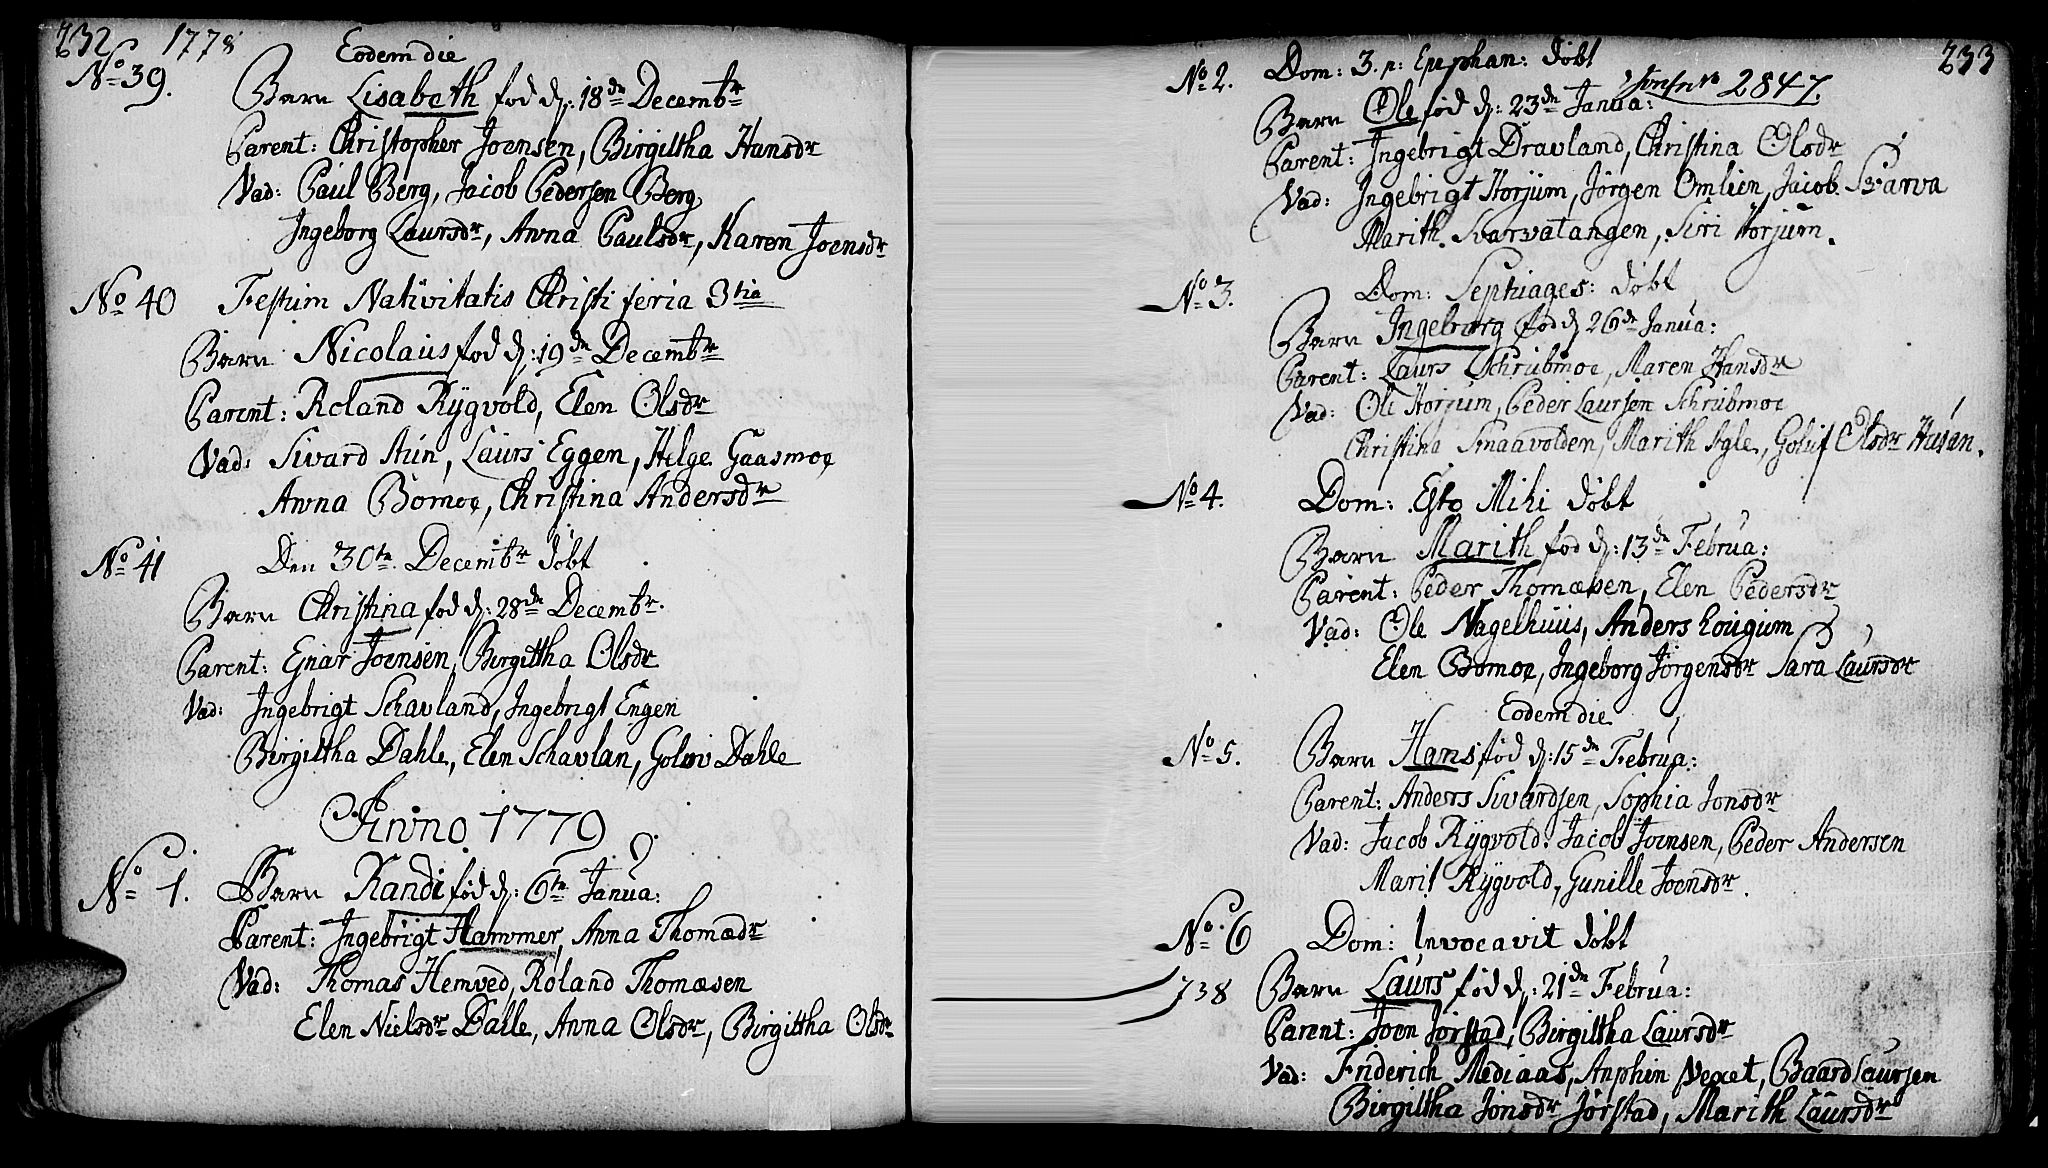 232 1778
Eodem die
No 39.
Barn Lisabeth fød d: 18de Decembr
Parent: Christopher Joensen, Birgittha Hansdr
Vad: Paul Berg, Jacob Pedersen Berg
Ingeborg Laursdr, Anna Paulsdr, Karen Joensdr
No 40 Festum Nativitatis Christi feria 3tia
Barn Nicolaus fod d: 19de Decembr
Parent: Roland Rygvold, Elen Olsdr
Vad: Sivard Aun, Laurs Eggen, Helge Gaasmoe
Anna Bomoe, Christina Andersdr
No 41 Den 30te Decembr døbt
Barn Christina fod d: 28de Decembr.
Parent: Enar Joensen, Birgittha Olsdr
Vad: Ingebrigt Schavland, Ingebrigt Engen
Birgittha Dahle, Elen Schavlan, Golov Dahle
Anno 1779
No 1. Barn Randi fød d: 6te Janua:
Parent: Ingebrigt Hammer, Anna Thomædr
Vad: Thomas Hemved, Roland Thomæsen
Elen Nielsdr Dahle, Anna Olsdr, Birgittha Olsdr
233
No 2. Dom: 3. p: Epiphan: døbt
2847.
Barn Ole fød d: 23de Janua:
Parent: Ingebrigt Dravland, Christina Olsdr
Vad: Ingebrigt Horjum, Jørgen Omlien, Jacob Svarva
Marith Svarvatangen, Siri Horjum.
No 3. Dom: Septuages: døbt
Barn Ingeborg fod d 26de Janua:
Parent: Laurs Schrubmoe, Maren Hansdr
Vad: Ole Horjum, Peder Laursen Schrubmoe
Christina Snaavolden, Marith Igle, Goluf Olsdr Husan.
No 4. Dom: Esto Mihi døbt
Barn Marith fod d: 13de Februa:
Parent: Peder Thomæsen, Elen Pedersdr
Vad: Ole Nagelhuus, Anders Lougum
Elen Bomoe, Ingeborg Jørgensdr Sara Laursdr
Eodem die
No 5. Barn Hans fød d: 15de Februa:
Parent: Anders Sivardsen, Sophia Jonsdr
Vad: Jacob Rygvold, Jacob Joensen, Peder Andersen
Marit Rygvold, Gunille Joensdr.
No 6 Dom: Invocavit døbt
738 Barn Laurs fød d: 21de Februa:
Parent: Joen Jørstad, Birgittha Laursdr
Vad: Friderich Mediaas, Anphin Vexet, Baard Laursen
Birgittha Jonsdr Jørstad, Marith Laursdr